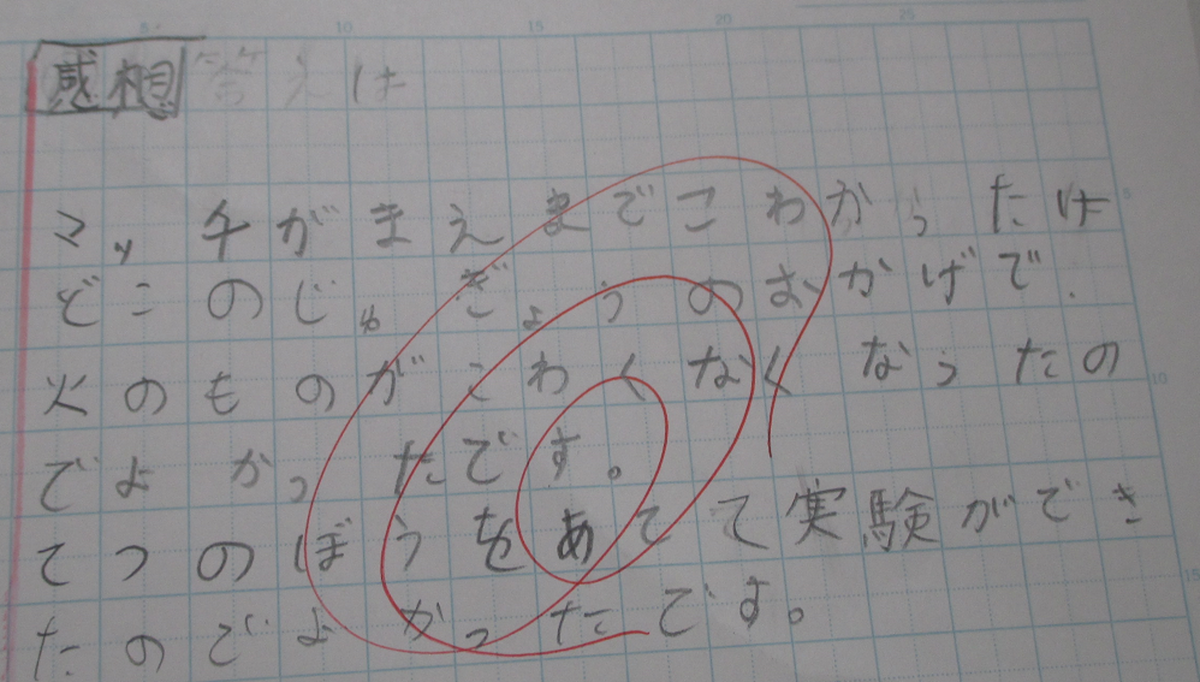 5 10 15 20 25
感想 答えは
マッチがまえまでこわかったけ
5
どこのじゅぎょうのおかげで.
火のものがこわくなくなったの
10
でよかったです。
てつのぼうをあてて実験ができ
15
たのでよかったです。